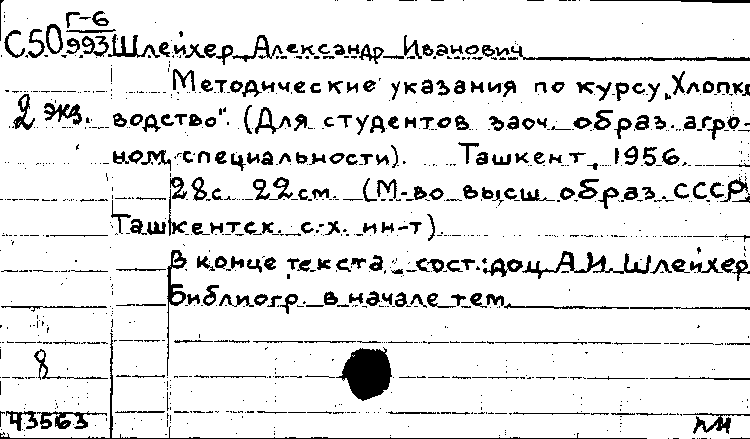 С50 Г-6/993 Шлейхер, Александр Иванович
Методические указания по курсу „Хлопко
2 экз. водство". (Для студентов заоч. образ. агро-
ном. специальности). Ташкент, 1956.
28с. 22см. (М-во высш. образ. СССР.
Ташкентск. с.-х. ин-т).
В конце текста сост.: доц. А.И. Шлейхер
Библиогр. в начале тем.
8
43563